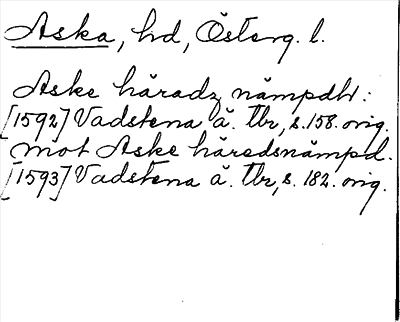 Aska, hd, Österg. l.
Aske häradz nämpdht:
[1592] Vadstena ä. Tbr, s. 158. orig.
mot Aske häredsnämpd.
[1593] Vadstena ä. Tbr, s. 182. orig.